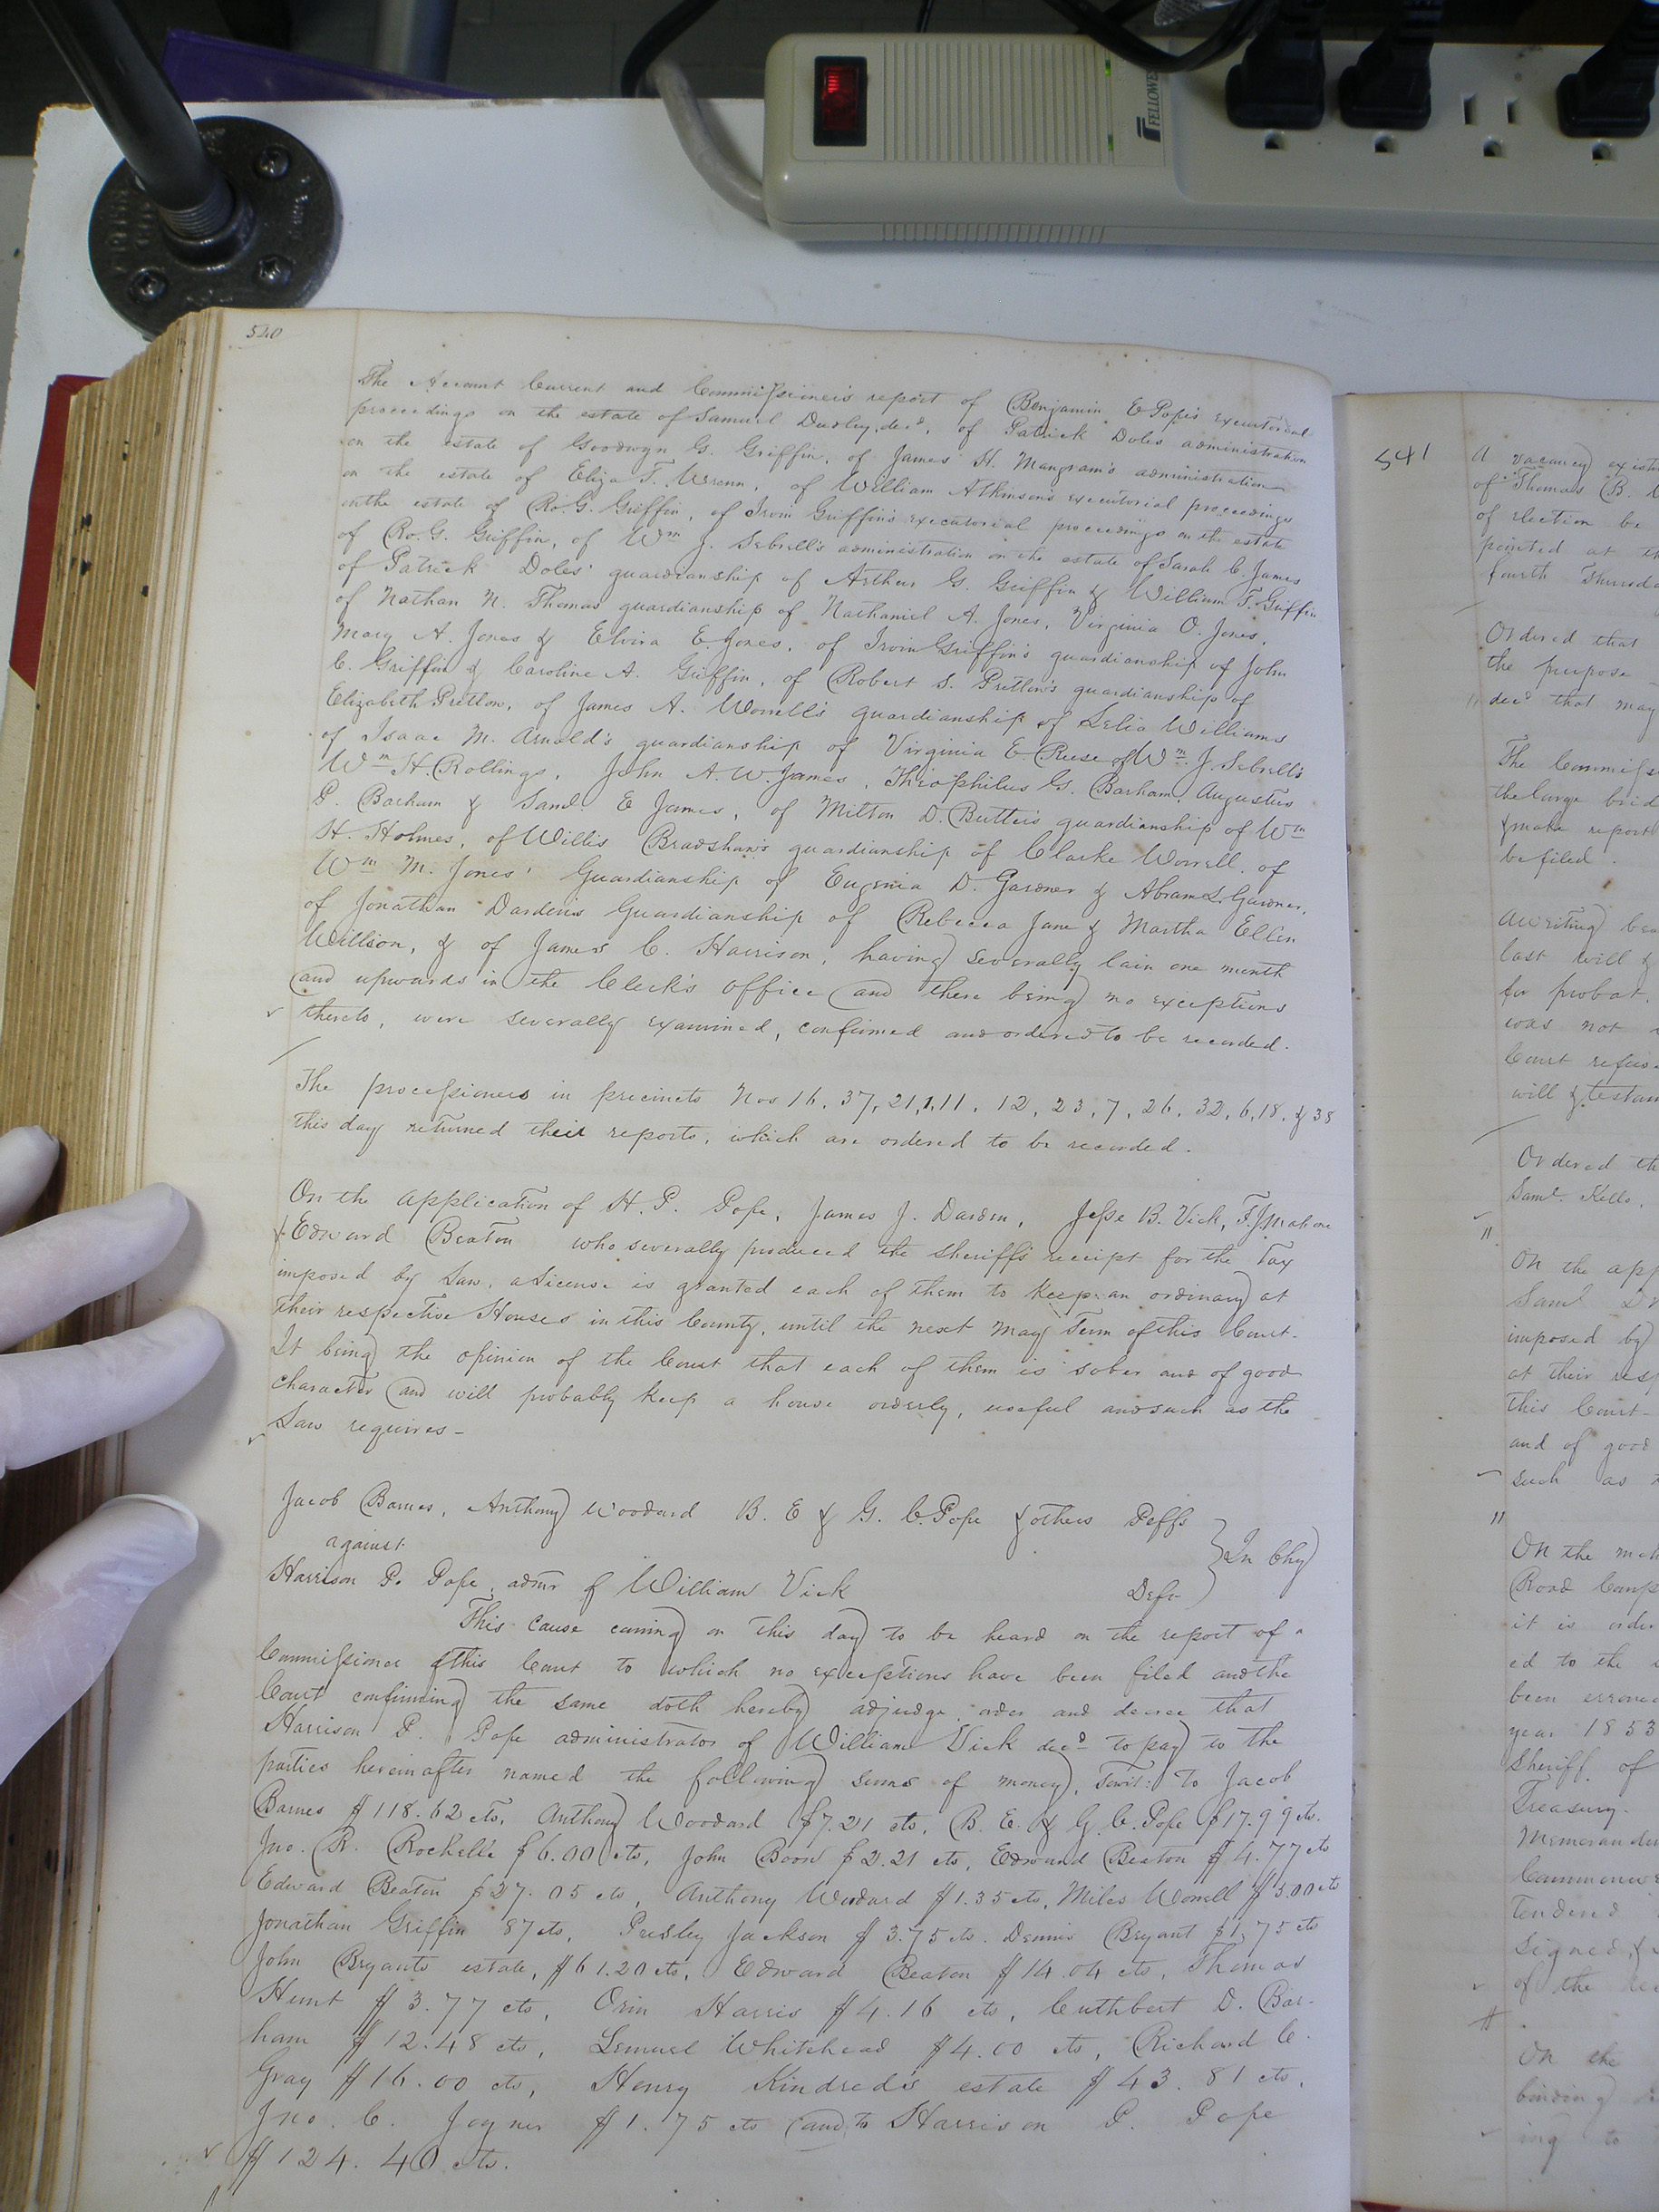 FELLOWE
540
The Account Current and Commissioner's report of Benjamin E Pope's executorial
proceedings on the estate of Samuel Dudley, decd, of Patrick Doles administration
on the estate of Goodwyn G. Griffin, of James H. Mangram's administration
on the estate of Eliza T. Wrenn, of William Atkinson's executorial proceedings
on the estate of Ro. G. Griffin, of Irvin Griffin's executorial proceedings on the estate
of Ro. G. Griffin, of Wm J. Sebrell's administration on the estate of Sarah C. James
of Patrick Doles' guardianship of Arthur G. Griffin & William T. Griffin
of Nathan N. Thomas guardianship of Nathaniel A. Jones, Virginia O. Jones,
Mary A. Jones & Elvira E. Jones, of Irvin Griffin's guardianship of John
C. Griffin & Caroline A. Griffin, of Robert S. Pretlow's guardianship of
Elizabeth Pretlow, of James A. Worrell's guardianship of Lelia Williams
of Isaac M. Arnold's guardianship of Virginia E. Reese of Wm J. Sebrell's
Wm H. Rollings, John A. W. James, Theophilus G. Barham, Augustus
P. Barham & Saml. E James, of Milton D. Butts guardianship of Wm
H. Holmes, of Willis Bradshaw's guardianship of Clarke Worrell, of
Wm M. Jones' Guardianship of Eugenia D. Gardner & Abram L. Gardner,
of Jonathan Darden's Guardianship of Rebecca Jane & Martha Ellen
Willson, & of James C. Harrison, having severally lain one month
and upwards in the Clerk's office and there being no exceptions
thereto, were severally examined, confirmed and ordered to be recorded.
The processioners in precincts Nos 16, 37, 21, 1, 11, 12, 23, 7, 26, 32, 6, 18, & 38
this day returned their reports, which are ordered to be recorded.
On the application of H. P. Pope, James J. Darden, Jesse B. Vick, F. J. Mahone
& Edward Beaton who severally produced the sheriff's receipt for the Tax
imposed by Law, a License is granted each of them to keep an ordinary at
their respective Houses in this County, until the next May Term of this Court.
It being the opinion of the Court that each of them is sober and of good
character and will probably keep a house orderly, useful and such as the
Law requires -
Jacob Barnes, Anthony Woodard B. E & G. C. Pope & others Peffs
against
In Chy
Harrison P. Pope, admr of William Vick Deft
This cause coming on this day to be heard on the report of a
Commissioner of this Court to which no exceptions have been filed and the
Court confirming the same doth hereby adjudge, order and decree that
Harrison P. Pope administrator of William Vick decd to pay to the
parties hereinafter named the following sums of money, Towit: To Jacob
Barnes $118.62 cts, Anthony Woodard $7.21 cts, B. E. & G. C. Pope $17.99 cts.
Jno. R. Rochelle $6.00 cts, John Boon $2.21 cts, Edward Beaton $4.77 cts
Edward Beaton $27.05 cts, Anthony Woodard $1.35 cts, Miles Worrell $5.00 cts
Jonathan Griffin 87 cts, Presley Jackson $3.75 cts. Dennis Bryant $1,75 cts
John Bryants estate, $61.20 cts, Edward Beaton $14.04 cts, Thomas
Hunt $3.77 cts, Orin Harris $4.16 cts, Cuthbert D. Bar-
ham $12.48 cts, Lemuel Whitehead $4.00 cts, Richard C.
Gray $16.00 cts, Henry Kindred's estate $43.81 cts,
Jno. C. Joyner $1.75 cts and to Harrison P. Pope
$124.40 cts.
541
A vacancy exist
of Thomas B.
of election be
pointed at th
fourth Thursda
Ordered that
the purpose
decd that may
The Commiss
the large brid
& make report
be filed.
A writing bea
last will &
for probat,
was not
Court refus
will & testam
Ordered th
Saml. Kello,
On the app
Saml
imposed by
at their resp
this Court-
and of good
such as
On the mot
Road Comp
it is order
ed to the
been errone
year 1853
Sheriff of
Treasury.
Memorandu
Commence
tendered
signed, &
of the
On the
binding
ing to